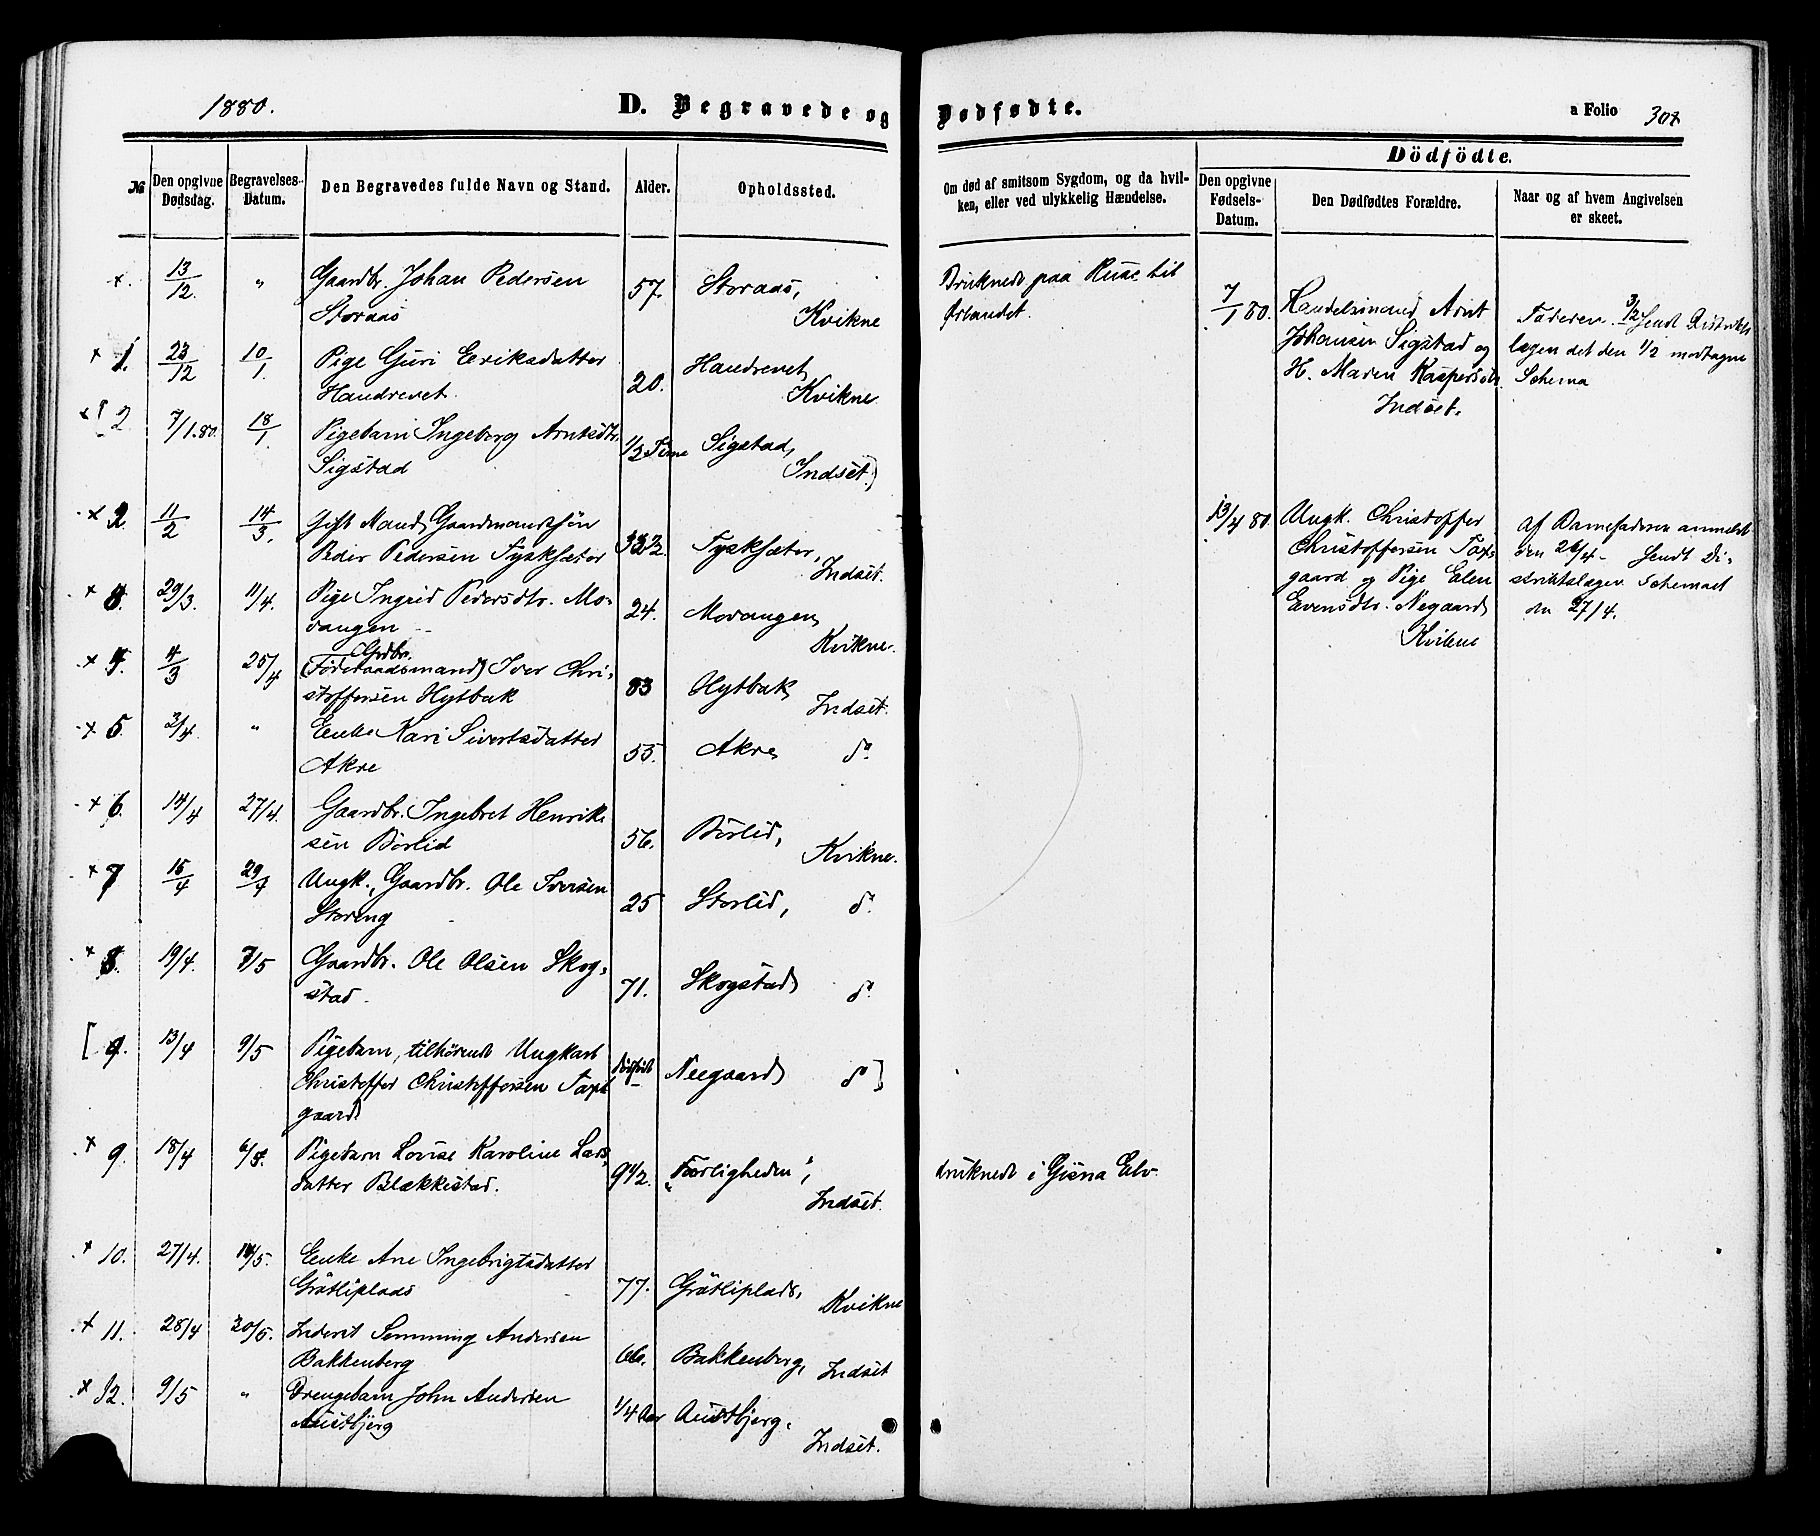 1880.
D. Begravede og Dødfødte.
a Folio 308
№
Den opgivne Dødsdag.
Begravelses-Datum.
Den Begravedes fulde Navn og Stand.
Alder.
Opholdssted.
Om død af smitsom Sygdom, og da hvil-
ken, eller ved ulykkelig Hændelse.
Dödfödte.
Den opgivne Fødsels-Datum.
Den Dødfødtes Forældre.
Naar og af hvem Angivelsen er skeet.
+. 13/12. " Gaardbr. Johan Pedersen
Storaas 57. Storaas, Kvikne
Druknede paa Reise til
Ørlandet.
+ 1. 23/12 10/1. Pige Guri Eriksdatter
Haudrevet. 20. Haudrevet, Kvikne.
+ [ 2 7/1.80. 18/1. Pigebarn Ingeborg Arntsdtr.
Sigstad 1/2 Time Sigstad, Indset.)
+ 2. 11/2 14/3. Gift Mand, Gaardmandssøn
Peder Pedersen Tysksæter Tysksæter, Indset.
+ 3. 29/3. 11/4. Pige Ingrid Pedersdtr. Mo-
vangen 24. Movangen, Kvikne.
+ 4. 4/3 25/4 Grdbr.
(Føderaadsmand) Iver Chri-
stoffersen Hytbak 83 Hytbak, Indset.
+ 5. 3/4. " Enke Kari Sivertsdatter
Akre 55. Akre do.
+ 6. 14/4 27/4. Gaardbr. Ingebret Henrik-
sen Börlid 56. Börlid, Kvikne.
+ 7 15/4 29/4 Ungk., Gaardbr. Ole Iversen
Storeng 25 Storlid, do.
+ 8. 19/4. 7/5 Gaardbr. Ole Olsen Skog-
stad. 71. Skogstad do.
[ 9. 13/4 9/5 Pigebarn, tilhörende Ungkarl
Christoffer Christoffersen Taxt-
gaard dödfödt Neegaard do ]
+ 9. 18/4 6/5. Pigebarn Lovise Karoline Lars-
datter Blækkestad. 9 1/2. "Færligheden", Indset.
druknede i Gisna Elv.
+ 10. 27/4. 14/5. Enke Ane Ingebrigtsdatter
Gråtliplads 77. Gråtliplads, Kvikne
+ 11. 28/4 30/5. Inderst Semming Andersen
Bakkenberg 66. Bakkenberg, Indset
+ 12. 9/5 " Drengebarn John Andersen
Austbjerg 1/4 Aar Austbjerg, Indset.
7/1 80. Handelsmand Arnt
Johansen Sigstad og
H. Maren Kaspersdtr.
Indset.
Faderen. 3/2 sendt Distrikts-
lægen det den 1/2 modtagne
Schema
13/4 80. Ungk. Christoffer
Christoffersen Taxt-
gaard og Pige Elen
Evensdtr. Negaard,
Kvikne
Af Barnefaderen anmeldt
den 26/4 - Sendt Di-
striktslægen Schemaet
den 27/4.